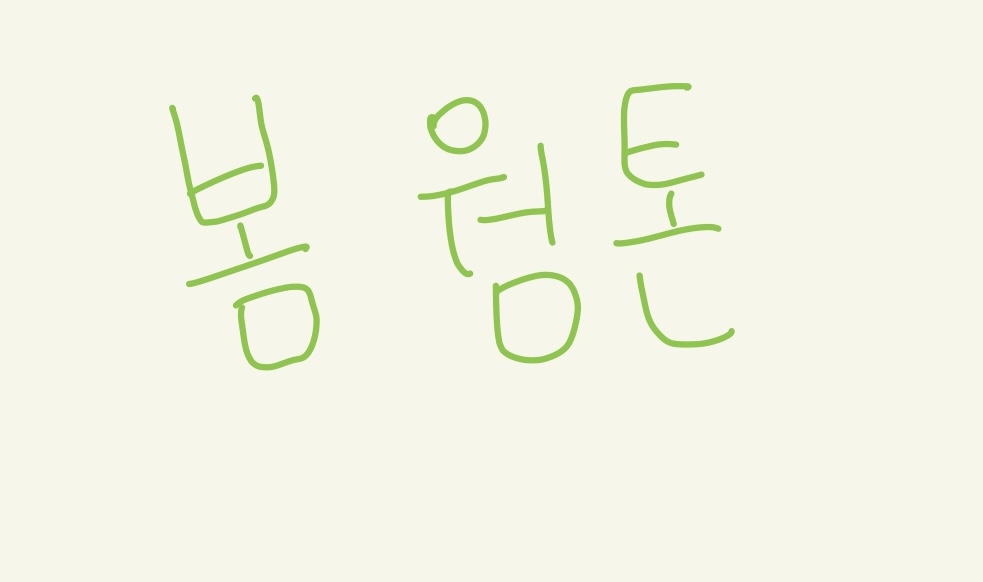 봄 웜 톤